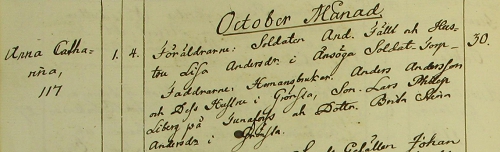 October Månad
Anna Catha-
rina,
117
1. 4. Föräldrarne: Soldaten And. Fälld och Hus-
tru Lisa Andersdr i Ånsöga Soldat-Torp 30.
Faddrarne: Hemansbruken: Anders Andersson
och Dess Hustru i Grönsla, Son. Lars Philip
Liberg på Gunafors och Dottr. Brita Stina
Andersdr i Grönsla.
Johan